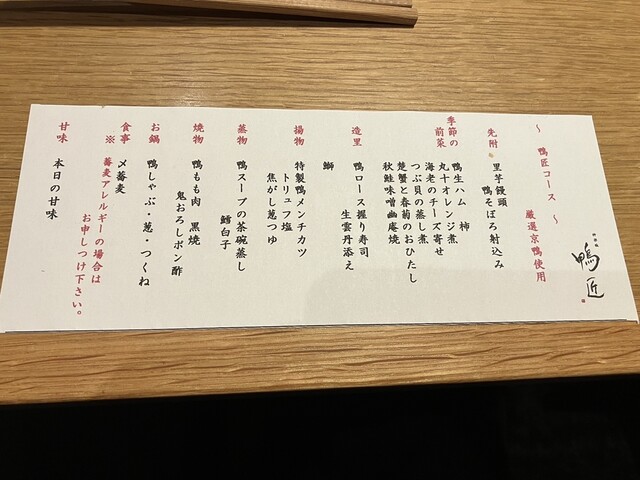 鴨匠
～ 鴨匠コース ～
厳選京鴨使用
先附
里芋饅頭
鴨そぼろ射込み
季節の
前菜
鴨生ハム 柿
丸十オレンジ煮
海老のチーズ寄せ
つぶ貝の蒸し煮
楚蟹と春菊のおひたし
秋鮭味噌幽庵焼
造里
鴨ロース握り寿司
生雲丹添え
鰤
揚物
特製鴨メンチカツ
トリュフ塩
焦がし葱つゆ
蒸物
鴨スープの茶碗蒸し
鱈白子
焼物
鴨もも肉 黒焼
鬼おろしポン酢
お鍋
鴨しゃぶ・葱・つくね
食事
〆蕎麦
※ 蕎麦アレルギーの場合は
お申しつけ下さい。
甘味
本日の甘味